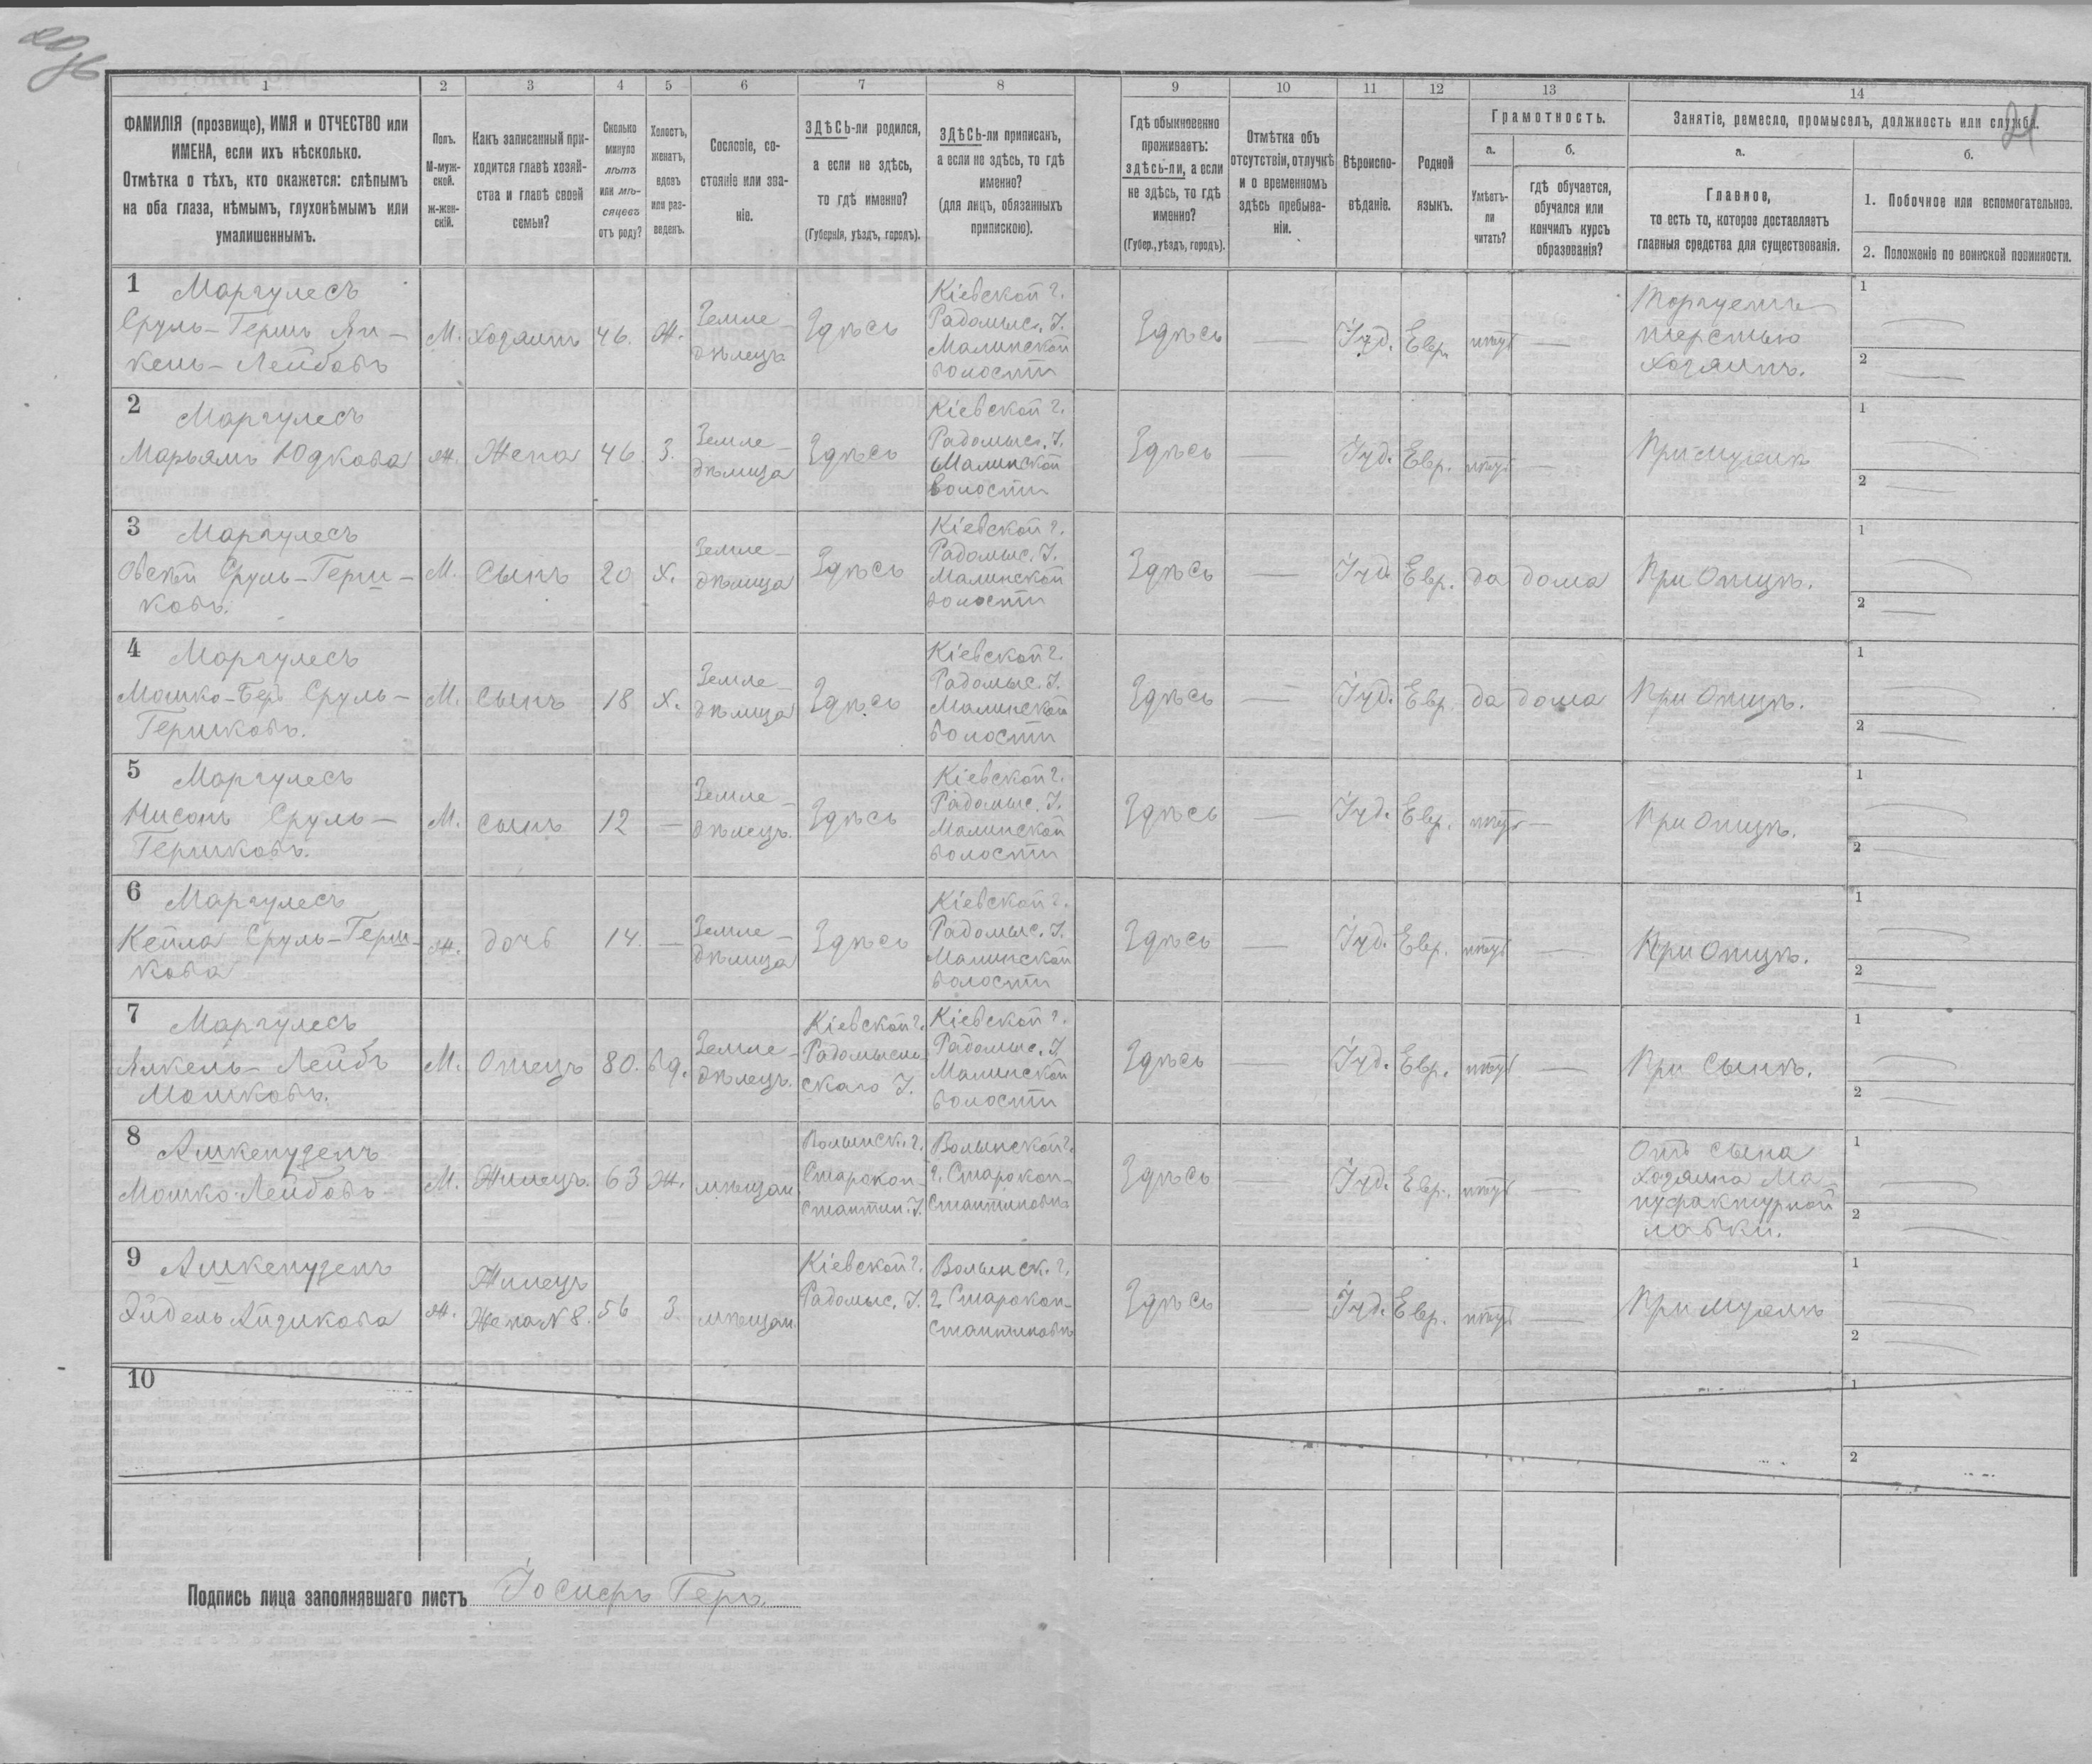 21
1 2 3 4 5 6 7 8 9 10 11 12 13 14
ФАМИЛІЯ (прозвище), ИМЯ и ОТЧЕСТВО или
ИМЕНА, если ихъ нѣсколько.
Отмѣтка о тѣхъ, кто окажется: слѣпымъ
на оба глаза, нѣмымъ, глухонѣмымъ или
умалишеннымъ.
Полъ.
М-муж-
ской.
ж-жен-
скій.
Какъ записанный при-
ходится главѣ хозяй-
ства и главѣ своей
семьи?
Сколько
минуло
лѣтъ
или мѣ-
сяцевъ
отъ роду?
Холостъ,
женатъ,
вдовъ
или раз-
веденъ.
Сословіе, со-
стояніе или зва-
ніе.
ЗДѢСЬ-ли родился,
а если не здѣсь,
то гдѣ именно?
(Губернія, уѣздъ, городъ).
ЗДѢСЬ-ли приписанъ,
а если не здѣсь, то гдѣ
именно?
(для лицъ, обязанныхъ
припискою).
Гдѣ обыкновенно
проживаетъ:
здѣсь-ли, а если
не здѣсь, то гдѣ
именно?
(Губер., уѣздъ, городъ).
Отмѣтка объ
отсутствіи, отлучкѣ
и о временномъ
здѣсь пребыва-
ніи.
Вѣроиспо-
вѣданіе.
Родной
языкъ.
Грамотность.
а.
Умѣетъ-
ли
читать?
б.
гдѣ обучается,
обучался или
кончилъ курсъ
образованія?
Занятіе, ремесло, промыселъ, должность или служба.
а.
Главное,
то есть то, которое доставляетъ
главныя средства для существованія.
б.
1. Побочное или вспомогательное.
2. Положеніе по воинской повинности.
1 Маргулесъ
Сруль-Гершъ Ян-
кель-Лейбовъ
М. Хозяинъ 46. Ж.
Земле-
дѣлецъ
Здѣсь
Кіевской г.
Радомыс. У.
Малинской
волости
Здѣсь — Іуд. Евр. нѣтъ —
Торгуетъ
шерстью
хозяинъ.
1 —
2 —
2 Маргулесъ
Марьямъ Юдкова
ж. Жена 46. З.
Земле-
дѣлица
Здѣсь
Кіевской г.
Радомыс. У.
Малинской
волости
Здѣсь — Іуд. Евр. нѣтъ — При мужѣ
1 —
2 —
3 Маргулесъ
Овсѣй Сруль-Герш-
ковъ.
М. Сынъ 20 Х.
Земле-
дѣлица
Здѣсь
Кіевской г.
Радомыс. У.
Малинской
волости
Здѣсь — Іуд. Евр. да дома При Отцѣ.
1 —
2 —
4 Маргулесъ
Мошко-Беръ Сруль-
Гершковъ.
М. Сынъ 18 Х.
Земле-
дѣлица
Здѣсь
Кіевской г.
Радомыс. У.
Малинской
волости
Здѣсь — Іуд. Евр. да дома При Отцѣ.
1 —
2 —
5 Маргулесъ
Нисонъ Сруль-
Гершковъ.
М. Сынъ 12 —
Земле-
дѣлецъ.
Здѣсь
Кіевской г.
Радомыс. У.
Малинской
волости
Здѣсь — Іуд. Евр. нѣтъ — При Отцѣ.
1 —
2 —
6 Маргулесъ
Кейла Сруль-Герш-
кова
ж. дочь 14. —
Земле-
дѣлица
Здѣсь
Кіевской г.
Радомыс. У.
Малинской
волости
Здѣсь — Іуд. Евр. нѣтъ — При Отцѣ.
1 —
2 —
7 Маргулесъ
Янкель-Лейбъ
Мошковъ.
М. Отецъ 80. вд.
Земле-
дѣлецъ.
Кіевской г.
Радомысль-
скаго У.
Кіевской г.
Радомыс. У.
Малинской
волости
Здѣсь — Іуд. Евр. нѣтъ — При Сынѣ.
1 —
2 —
8 Ашкенуденъ
Мошко Лейбовъ
М. Жилецъ. 63 Ж. мѣщан.
Волынск. г.
Старокон-
стантин. У.
Волынской г.
г. Старокон-
стантиновъ
Здѣсь Іуд. Евр. нѣтъ —
Отъ сына
хозяина Ма-
нуфактурной
лавки.
1 —
2 —
9 Ашкенуденъ
Эйдель Айзикова
ж.
Жилецъ
Жена N 8.
56 З. мѣщан.
Кіевской г.
Радомыс. У.
Волынск. г.
г. Старокон-
стантиновъ
Здѣсь — Іуд. Евр. нѣтъ — При мужѣ
1 —
2 —
10
1
2
Подпись лица заполнявшаго листъ Іосифъ Геръ